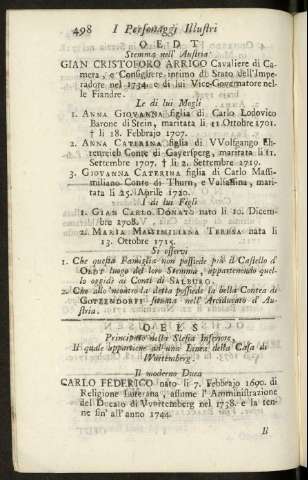 498 I Personaggi Illustri
OEDT
Stemma nell' Austria.
GIAN CRISTOFORO ARRIGO Cavaliere di Ca-
mera, e Consigliere intimo di Stato dell'Impe-
radore nel 1734. e di lui Vice-Governatore nel-
le Fiandre.
Le di lui Mogli
1. ANNA GIOVANNA figlia di Carlo Lodovico
Barone di Stein, maritata li 21. Ottobre 1701.
† li 18. Febbrajo 1707.
2. ANNA CATERINA figlia di VVolfgango Eh-
renreich Conte di Gayersperg, maritata li 11.
Settembre 1707. † li 2. Settembre 1710.
3. GIOVANNA CATERINA figlia di Carlo Massi-
miliano Conte di Thurn, e Vallassina, mari-
tata li 25. Aprile 1720.
I di lui Figli
1. GIAN CARLO DONATO nato li 10. Dicem-
bre 1708.
2. MARIA MASSIMILIANA TERESA nata li
13. Ottobre 1715.
Si osservi
1. Che questa Famiglia non possiede più il Castello d'
OEDT luogo del loro Stemma, appartenendo quel-
lo oggidì ai Conti di SALBURG.
2. Che allo 'ncontro la detta possiede la bella Contea di
GOTZENDORFF situata nell' Arciducato d' Au-
stria.
OELS
Principato della Slesia Inferiore,
Il quale appartiene ad una Linea della Casa di
Wurtemberg.
Il moderno Duca
CARLO FEDERICO nato li 7. Febbrajo 1690. di
Religione Luterana, assume l' Amministrazione
del Ducato di VVurtemberg nel 1738. e la ten-
ne sin' all' anno 1744.
Ii